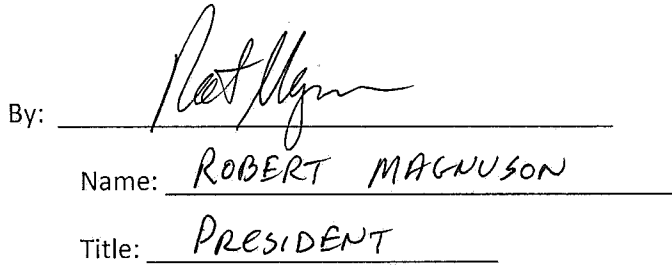 By:
Name: ROBERT MAGNUSON
Title: PRESIDENT